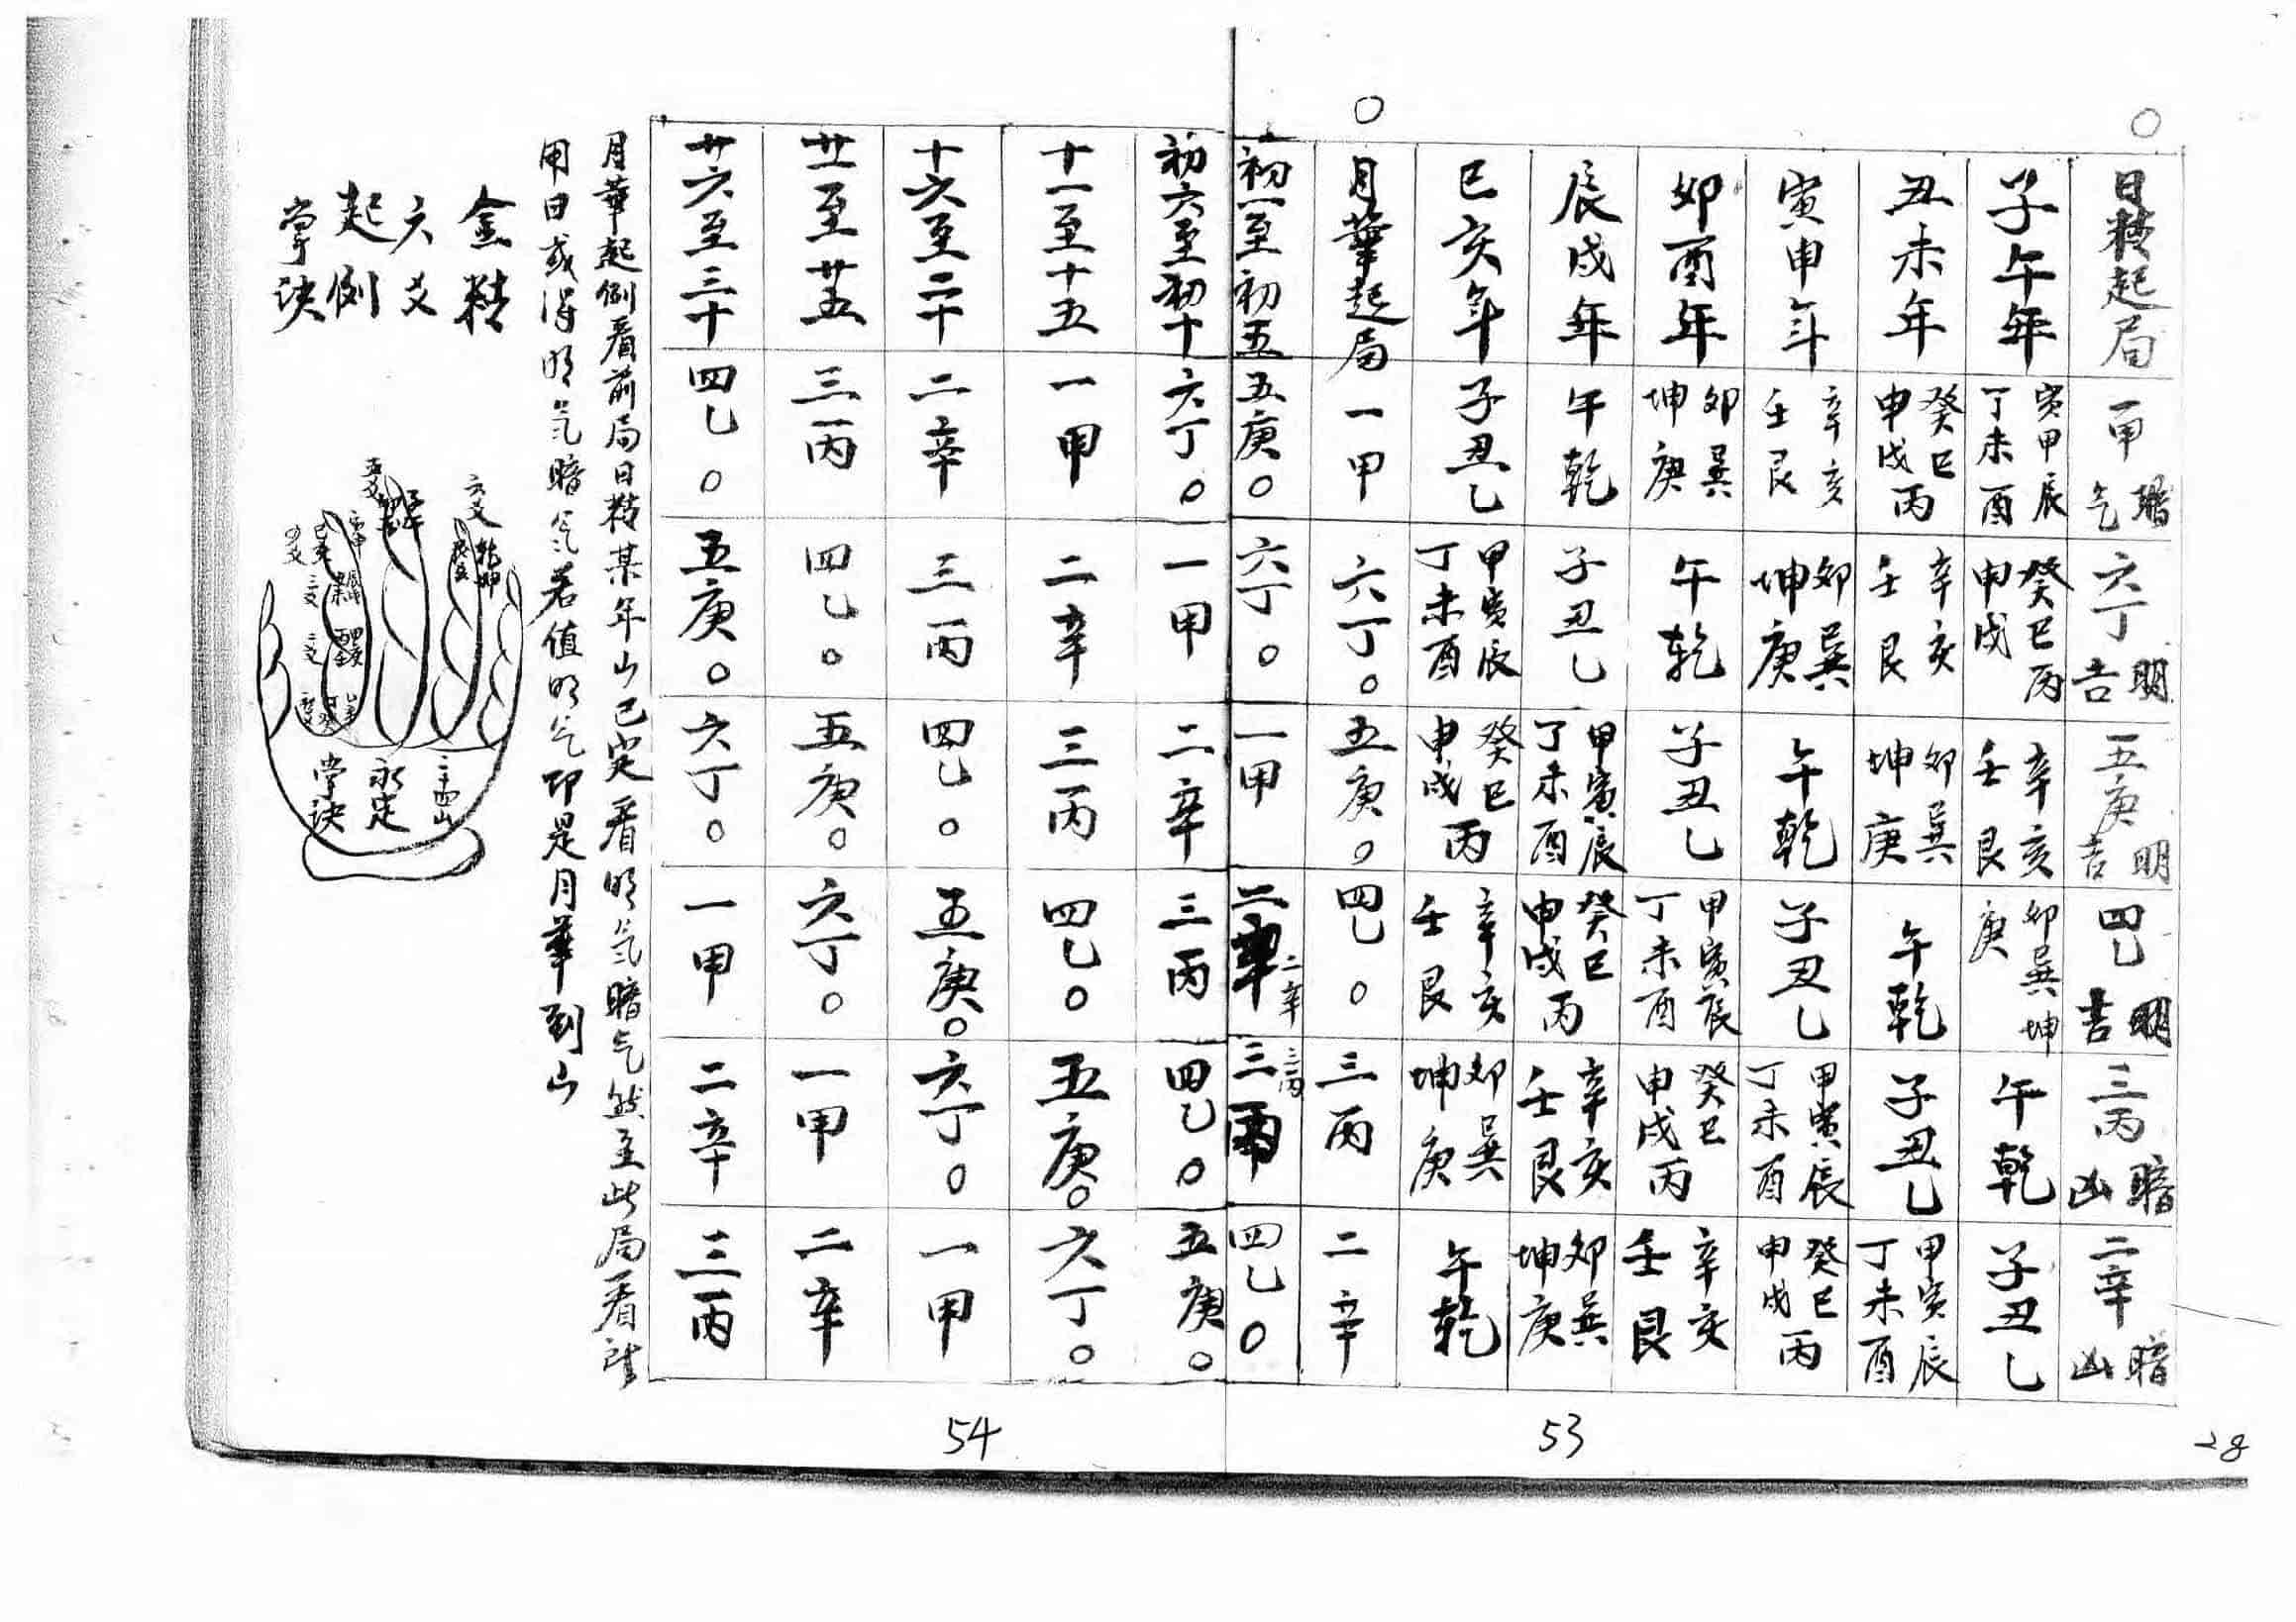 日精起局 一甲 暗气 六丁 明吉 五庚 明吉 四乙 明吉 三丙 暗凶 二辛 暗凶
子午年 寅甲辰丁未酉 癸巳丙申戌 辛亥壬艮 卯巽坤庚 午乾 子丑乙
丑未年 癸巳申戌丙 辛亥壬艮 卯巽坤庚 午乾 子丑乙 甲寅辰丁未酉
寅申年 辛亥壬艮 卯巽坤庚 午乾 子丑乙 甲寅辰丁未酉 癸巳申戌丙
卯酉年 卯巽坤庚 午乾 子丑乙 甲寅辰丁未酉 癸巳申戌丙 辛亥壬艮
辰戌年 午乾 子丑乙 甲寅辰丁未酉 癸巳申戌丙 辛亥壬艮 卯巽坤庚
巳亥年 子丑乙 甲寅辰丁未酉 癸巳申戌丙 辛亥壬艮 卯巽坤庚 午乾
月華起局 一甲 六丁。 五庚。 四乙。 三丙 二辛
初一至初五 五庚。 六丁。 一甲 二辛 二辛 三丙 三丙 四乙。
初六至初十 六丁。 一甲 二辛 三丙 四乙。 五庚。
十一至十五 一甲 二辛 三丙 四乙。 五庚。 六丁。
十六至二十 二辛 三丙 四乙。 五庚。 六丁。 一甲
廿一至廿五 三丙 四乙。 五庚。 六丁。 一甲 二辛
廿六至三十 四乙。 五庚。 六丁。 一甲 二辛 三丙
月華起例看前局日精某年山已定看明气暗气然主此局看所
用日或得明气暗气若值明气即是月華到山
金精
六爻
起例
掌诀
六爻
乾坤
二十四山
永定
掌诀
53
54
28